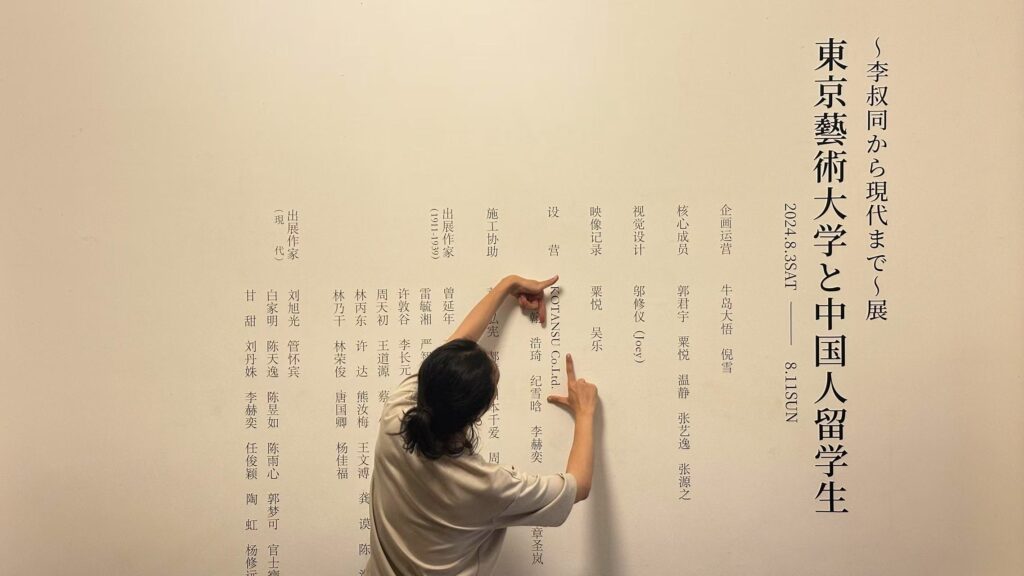 ～李叔同から現代まで～展
東京藝術大学と中国人留学生
2024.8.3SAT —— 8.11SUN
企画运营 牛岛大悟 倪雪
核心成员 郭君宇 粟悦 温静 张艺逸 张源之
视觉设计 邬修仪（Joey）
映像记录 粟悦 吴乐
设营 KOTANSU Co.Ltd.
浩琦 纪雪晗 李赫奕 章圣岚
施工协助 弘宪 本千爱 周
出展作家 曾延年
(1911-1939) 雷毓湘 严智
许敦谷 李长元
周天初 王道源 蔡
林丙东 许达 熊汝梅 王文溥 龚谟 陈
林乃干 林荣俊 唐国卿 杨佳福
出展作家 刘旭光 管怀宾
（現代） 白家明 陈天逸 陈昱如 陈雨心 郭梦可 官士寶
甘甜 刘丹姝 李赫奕 任俊颖 陶虹 杨修远